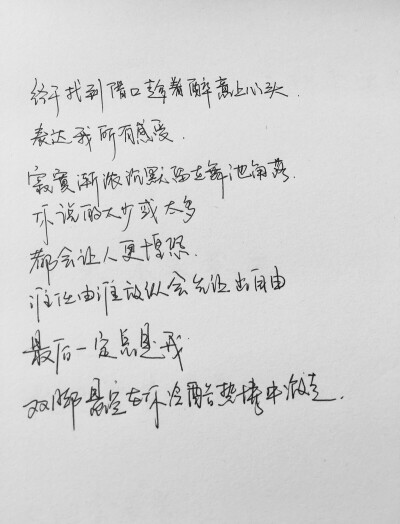 终于找到借口趁着醉意上心头.
表达我所有感受.
寂寞渐浓沉默留在舞池角落.
你说的太少或太多
都会让人更惶恐.
谁任由谁放纵会先让出自由
最后一定总是我
双脚悬空在你冷酷热情中游走.